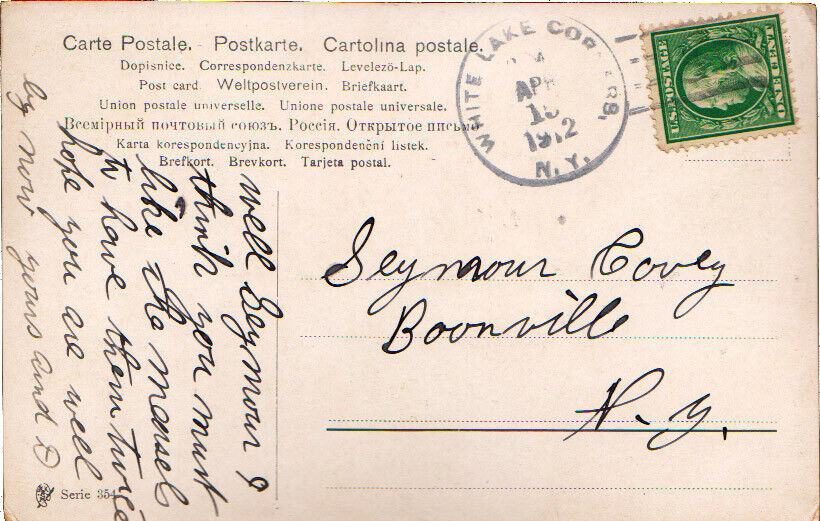 Carte Postale. - Postkarte. Cartolina postale.
Dopisnice. Correspondenzkarte. Levelező-Lap.
Post card. Weltpostverein. Briefkaart.
Union postale universelle. Unione postale universale.
Всемірный почтовый союзъ. Россія. Открытое письмо
Karta korespondencyjna. Korespondenční listek.
Brefkort. Brevkort. Tarjeta postal.
WHITE LAKE CORNERS,
APR
1912
N.Y.
U.S. POSTAGE
Seymour Covey
Boonville
N.Y.
well Seymour
think you must
like the measels
to have them twice
hope you are well
by now yours and
Serie 354